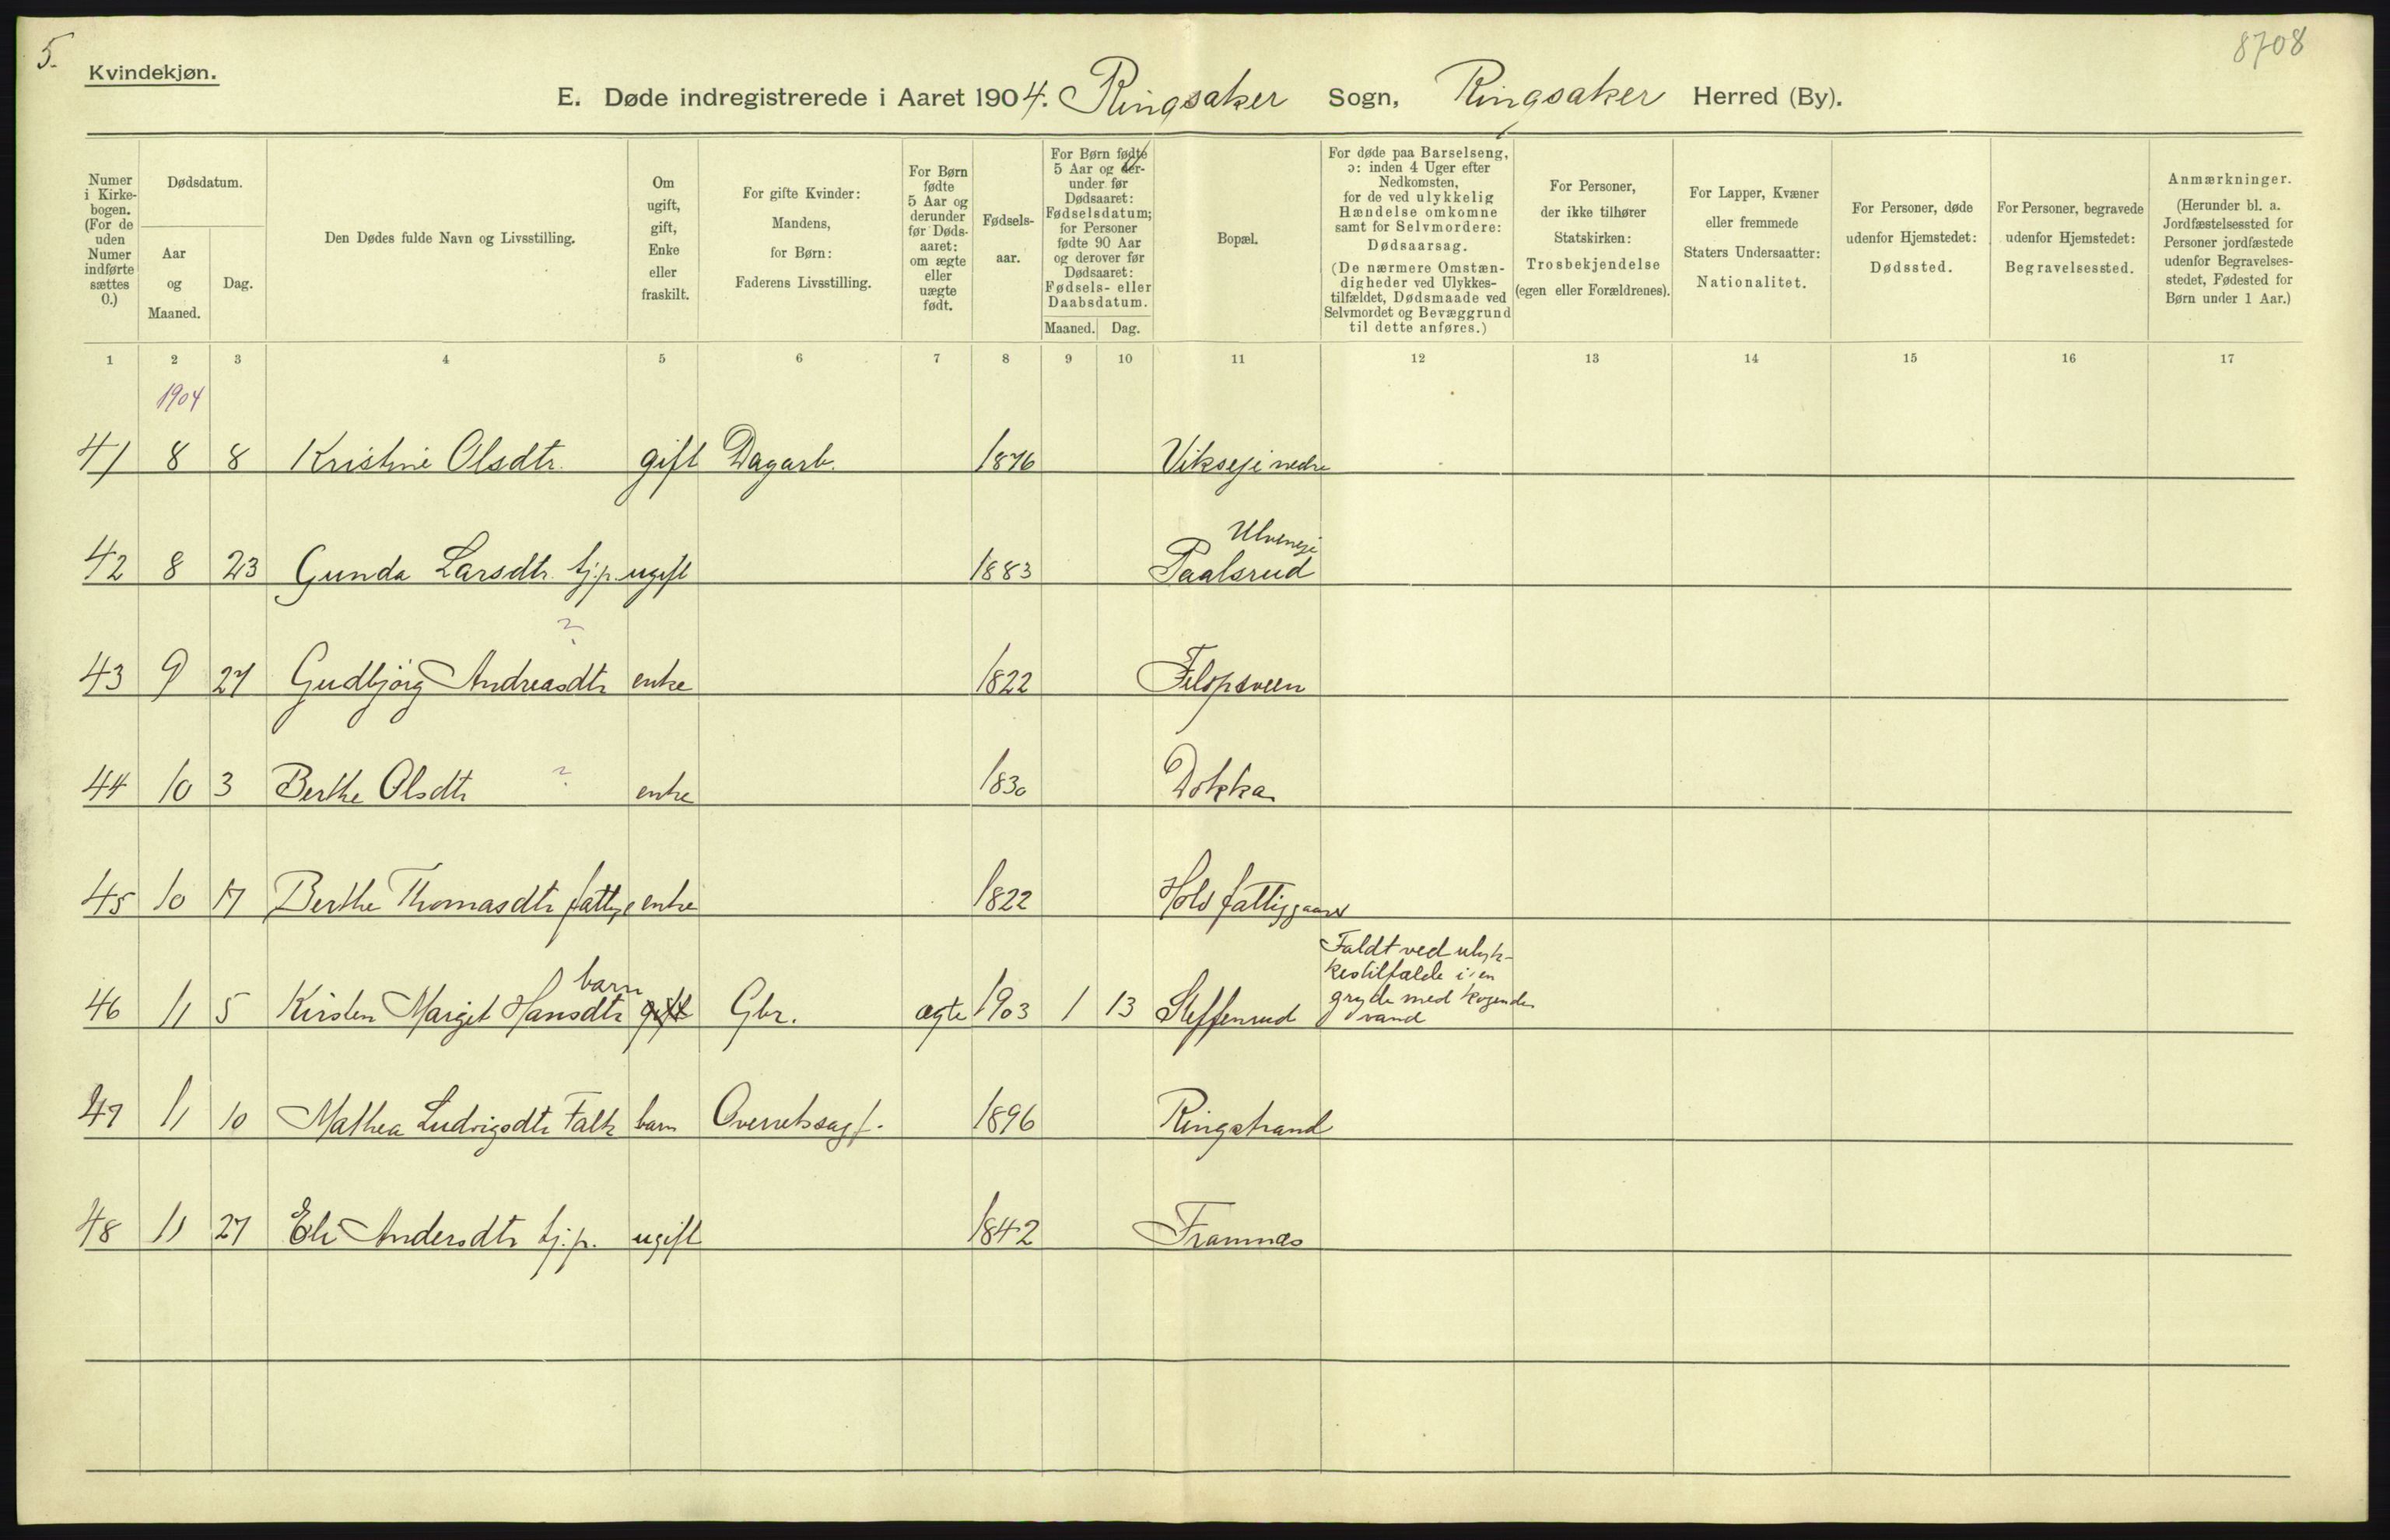 5.
8708
Kvindekjøn.
E. Døde indregistrerede i Aaret 1904. Ringsaker Sogn, Ringsaker Herred (By).
Numer i Kirke-bogen. (For de uden Numer indførte sættes 0.)
Dødsdatum.
Aar og Maaned.
Dag.
Den Dødes fulde Navn og Livsstilling.
Om ugift, gift, Enke eller fraskilt.
For gifte Kvinder: Mandens, for Børn: Faderens Livsstilling.
For Børn fødte 5 Aar og derunder før Døds-aaret: om ægte eller uægte født.
Fødsels-aar.
For Børn fødte 5 Aar og der-under før Dødsaaret: Fødselsdatum; for Personer fødte 90 Aar og derover før Dødsaaret: Fødsels- eller Daabsdatum.
Maaned. Dag.
Bopæl.
For døde paa Barselseng, ɔ: inden 4 Uger efter Nedkomsten, for de ved ulykkelig Hændelse omkomne samt for Selvmordere: Dødsaarsag. (De nærmere Omstæn-digheder ved Ulykkes-tilfældet, Dødsmaade ved Selvmordet og Bevæggrund til dette anføres.)
For Personer, der ikke tilhører Statskirken: Trosbekjendelse (egen eller Forældrenes).
For Lapper, Kvæner eller fremmede Staters Undersaatter: Nationalitet.
For Personer, døde udenfor Hjemstedet: Dødssted.
For Personer, begravede udenfor Hjemstedet: Begravelsessted.
Anmærkninger. (Herunder bl. a. Jordfæstelsessted for Personer jordfæstede udenfor Begravelses-stedet, Fødested for Børn under 1 Aar.)
1 2 3 4 5 6 7 8 9 10 11 12 13 14 15 16 17
1904
41 8 8 Kristine Olsdtr. gift Dagarb. 1876 Vikseje nedre
Ulveneje
42 8 23 Gunda Larsdtr. tj.p. ugift 1883 Paalsrud
?
43 9 27 Gudbjörg Andreasdtr enke 1822 Filipsveen
44 10 3 Berthe Olsdtr ? enke 1830 Dokka
45 10 17 Berthe Thomasdtr fattige enke 1822 Hols fattiggaard
barn Faldt ved ulyk-
kestilfælde i en
46 11 5 Kirsten Margit Hansdtr gift Gbr. ægte 1903 1 13 Steffensrud gryde med kogende
vand
47 11 10 Mathea Ludvigsdtr Falk barn Overretssagf. 1896 Ringstrand
48 11 27 Eli Andersdtr tj.p. ugift 1842 Framnæs